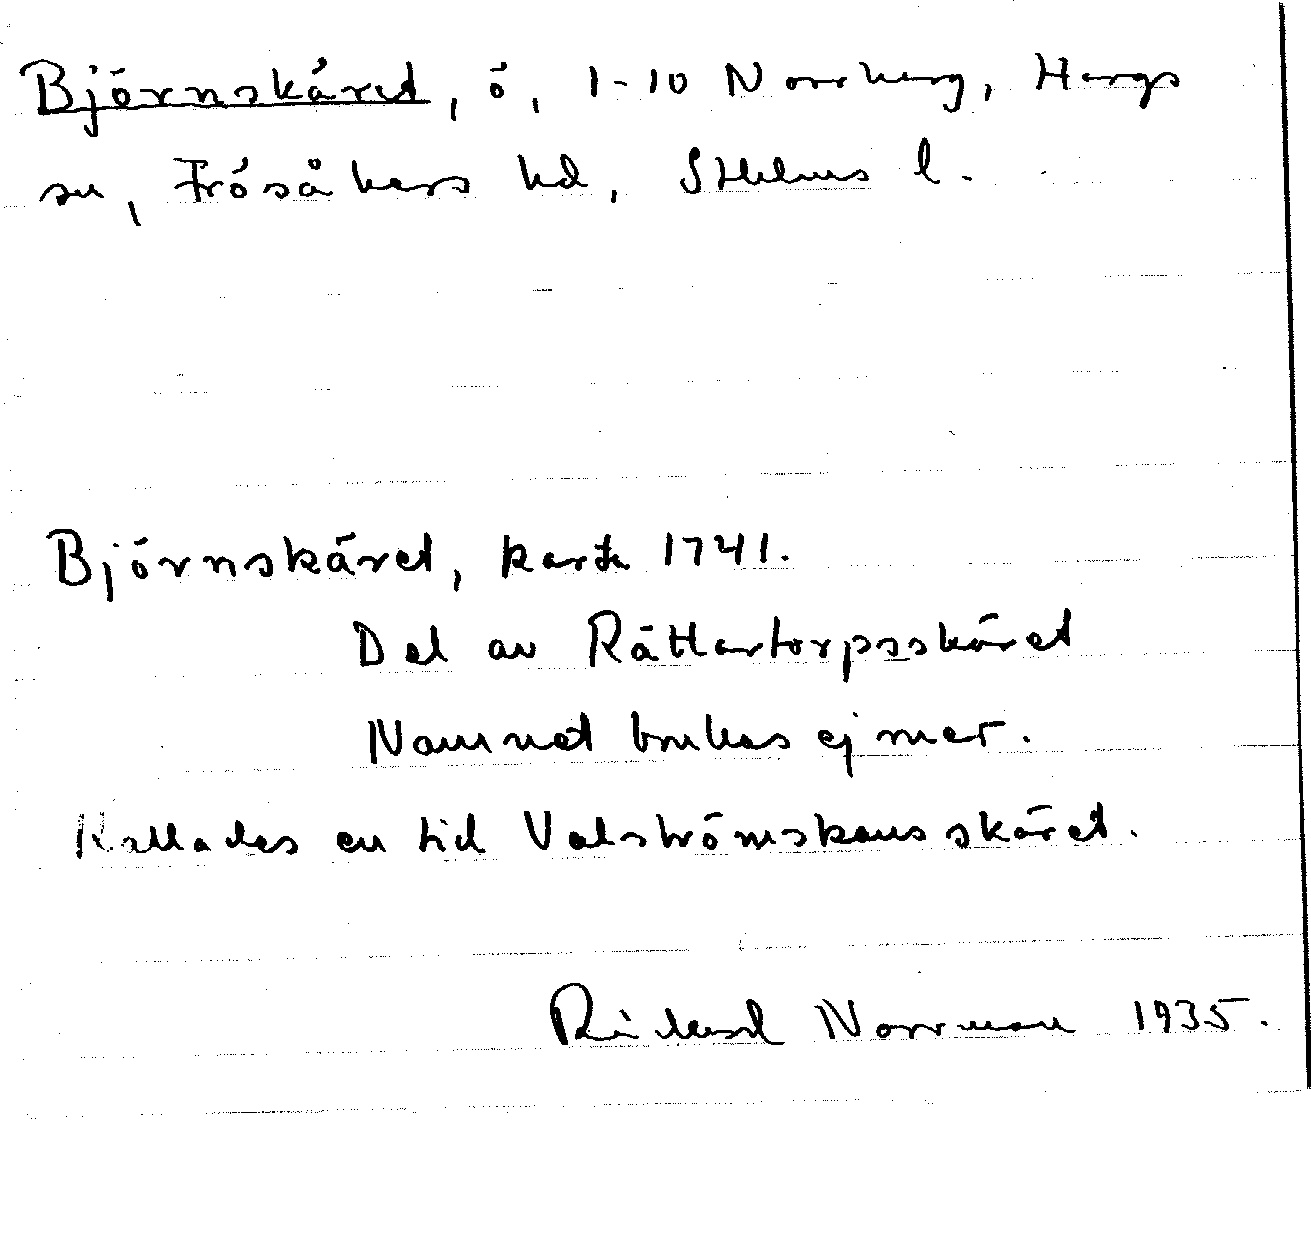 Björnskäret, ö, 1-10 Norrharg, Hargs
sn, Frösåkers hd, Sthlms l.
Björnskäret, karta 1741.
Del av Rättartorpsskäret
Namnet brukas ej mer.
Kallades en tid Valströmskans skäret.
Rickard Norrman 1935.